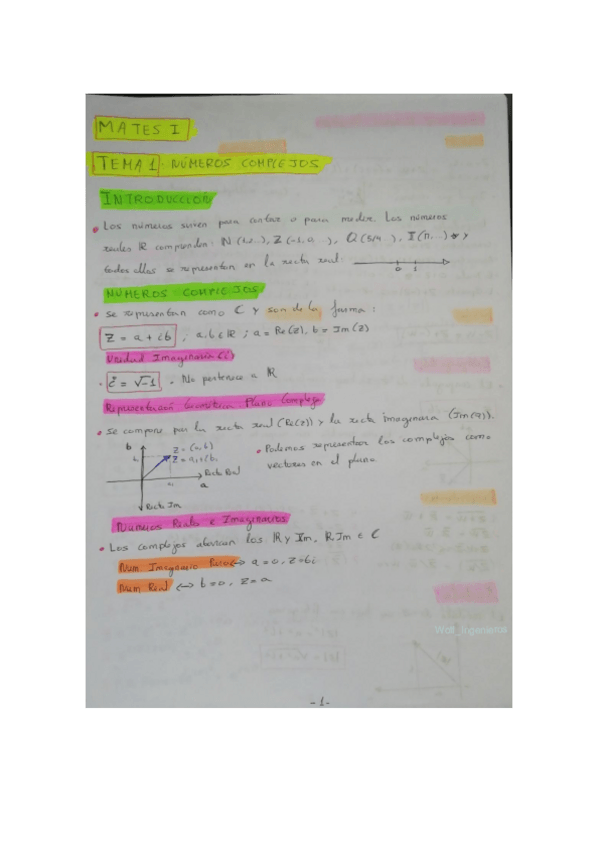 MATES I
TEMA 1. NÚMEROS COMPLEJOS
INTRODUCCIÓN
• Los números sirven para contar o para medir. Los números
reales ℝ comprenden: N (1,2...), Z (-1,0 ...), Q (5/4...), I (π,...) y
todos ellos se representan en la recta real:
0 1
NÚMEROS COMPLEJOS
• Se representan como C y son de la forma:
Z = a + ib ; a,b ∈ ℝ ; a = Re(z), b = Im(z)
Unidad Imaginaria (i)
• i = √-1 • No pertenece a ℝ
Representación Geométrica Plano Complejo
• Se compone por la recta real (Re(z)) y la recta imaginaria (Im(z)).
b
Z = (a,b)
Z = a+ib
Recta Real
a
Recta Im
• Podemos representar los complejos como
vectores en el plano.
Números Reales e Imaginarios
• Los complejos abarcan los ℝ y Im, ℝ, Im ∈ C
Num. Imaginario Puro ⇔ a = 0, z = bi
Num Real ⇔ b = 0, z = a
-1-